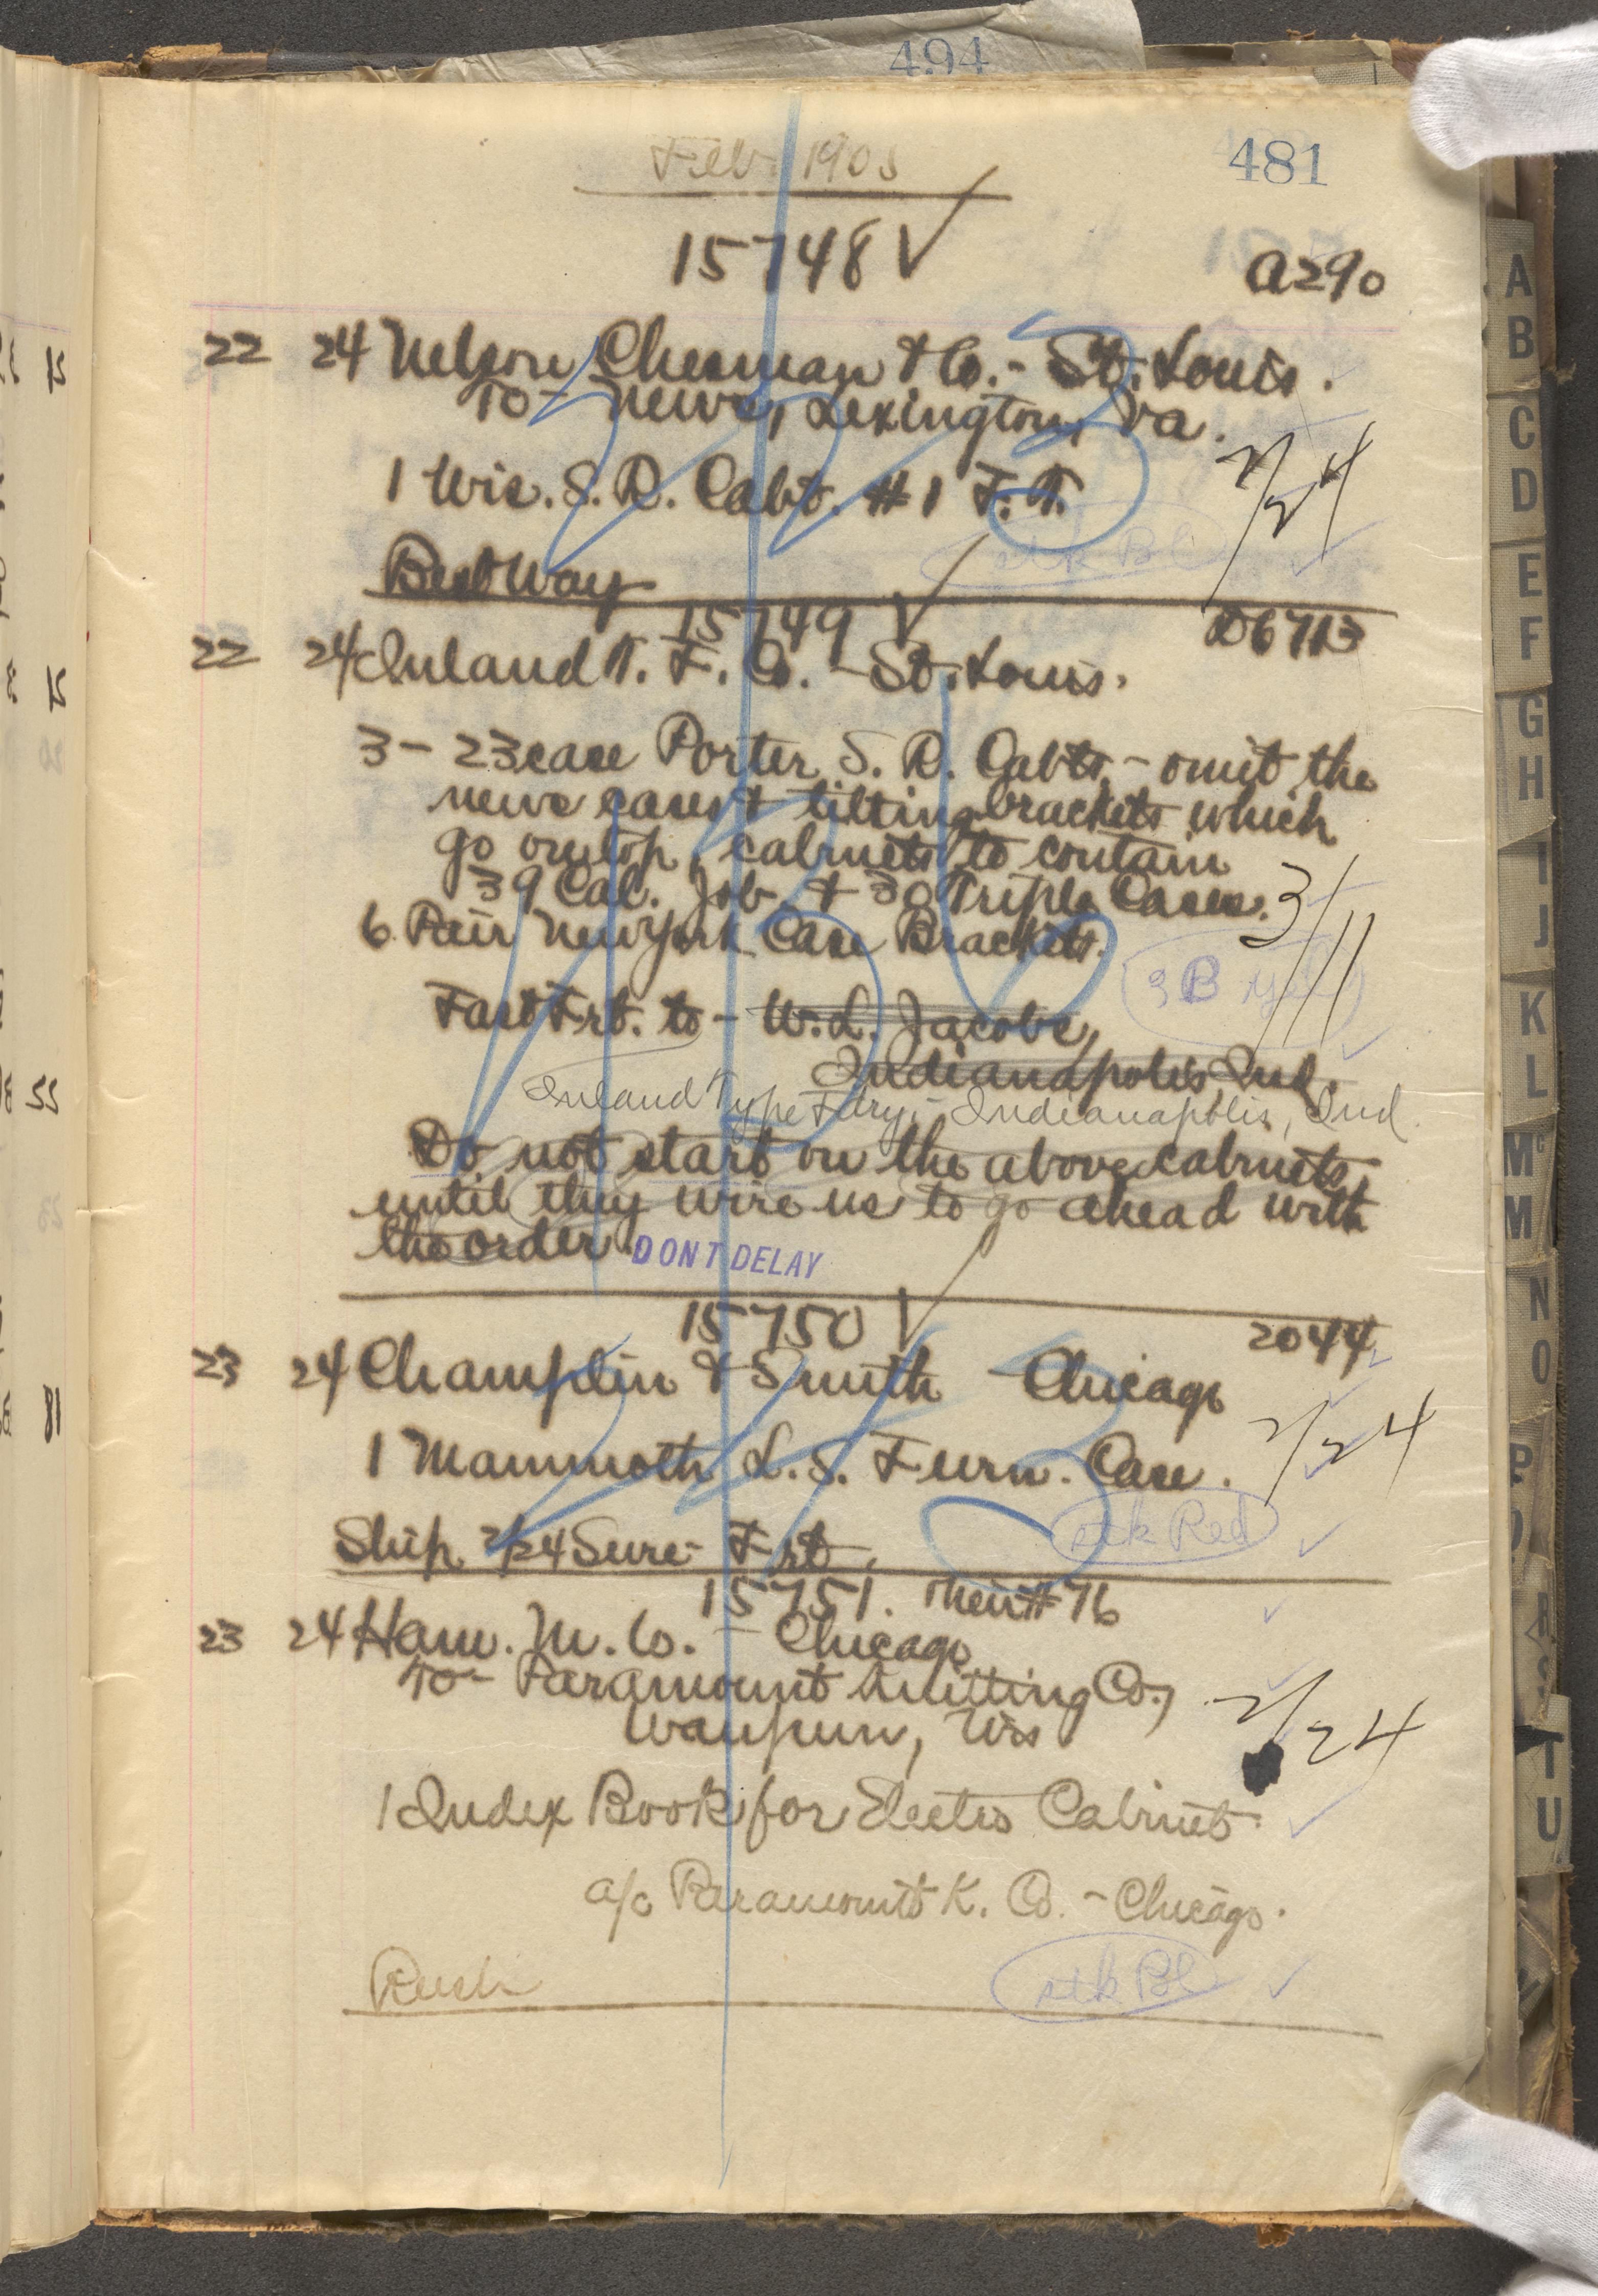 494
481
Feb. 1905
15748 ✓
A290
22 24 Nelson Chesman & Co. - St. Louis.
To - News, Lexington, Va.
1 Wis. S. R. Cabt. #1 F. T.
2/24
stk Bl
Best Way
15749 ✓
D6713
22 24 Inland T. F. Co. - St. Louis.
3 - 23 case Porter S. R. Cabts. - omit the
news cases & tilting brackets which
go on top, cabinets to contain
39 Cal. Job & 30 Triple Cases.
3/11
6 Pair New York Case Brackets.
Fast Frt. to - W. L. Jacobs,
Indianapolis, Ind.
Inland Type Fdry, - Indianapolis, Ind.
Do not start on the above cabinets
until they wire us to go ahead with
the order.
DONT DELAY
15750 ✓
2044
23 24 Champlin & Smith Chicago
1 Mammoth L. S. Furn. Case.
2/24
stk Red
Ship 2/24 Sure - Frt.
15751. Their #76
23 24 Ham. M. Co. - Chicago
To - Paramount Knitting Co.,
Waupun, Wis
2/24
1 Index Book for Electro Cabinet.
a/c Paramount K. Co. - Chicago.
Rush
stk Bl
A
B
C
D
E
F
G
H
I
J
K
L
Mc
M
N
O
P
T
U